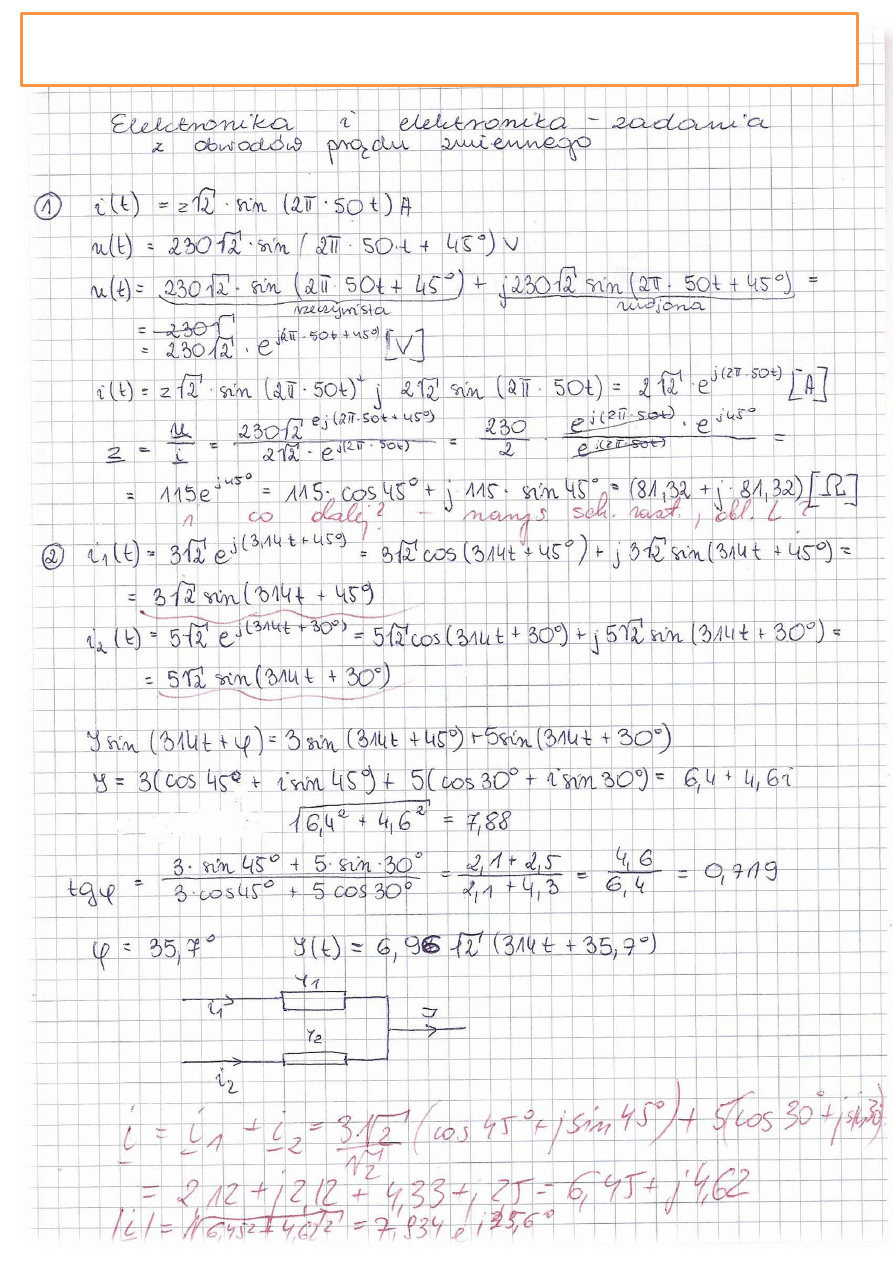 Elektronika i elektronika - zadania
z obwodów prądu zmiennego
① i(t) = 2√2 · sin (2π · 50t) A
u(t) = 230√2 · sin (2π · 50t + 45°) V
u(t) = 230√2 · sin (2π · 50t + 45°) + j230√2 sin (2π · 50t + 45°) =
rzeczywista urojona
= 230√
= 230√2 · e^j(2π · 50t + 45°) [V]
i(t) = 2√2 · sin (2π · 50t) + j 2√2 sin (2π · 50t) = 2√2 · e^j(2π · 50t) [A]
z = u/i = 230√2 e^j(2π·50t + 45°) / 2√2 · e^j(2π · 50t) = 230/2 · e^j(2π · 50t) · e^j45° / e^j(2π · 50t) =
= 115e^j45° = 115 · cos 45° + j · 115 · sin 45° = (81,32 + j · 81,32) [Ω]
co dalej? - sch. zast., obl. L ?
② i₁(t) = 3√2 e^j(314t + 45°) = 3√2 cos (314t + 45°) + j 3√2 sin (314t + 45°) =
= 3√2 sin (314t + 45°)
i₂(t) = 5√2 e^j(314t + 30°) = 5√2 cos (314t + 30°) + j 5√2 sin (314t + 30°) =
= 5√2 sin (314t + 30°)
Y sin (314t + φ) = 3 sin (314t + 45°) + 5 sin (314t + 30°)
Y = 3(cos 45° + i sin 45°) + 5 (cos 30° + i sin 30°) = 6,4 + 4,6i
√6,4² + 4,6² = 7,88
tgφ = 3 · sin 45° + 5 · sin · 30° / 3 · cos 45° + 5 cos 30° = 2,1 + 2,5 / 2,1 + 4,3 = 4,6 / 6,4 = 0,719
φ = 35,7° Y(t) = 6,96 √2 (314t + 35,7°)
i₁ r₁ J
i₂ r₂
i = i₁ + i₂ = 3√2/√2 (cos 45° + j sin 45°) + 5(cos 30° + j sin 30)
= 2,12 + j2,12 + 4,33 + j 2,5 = 6,45 + j4,62
|i| = √6,45² + 4,62² = 7,934 e^j35,6°